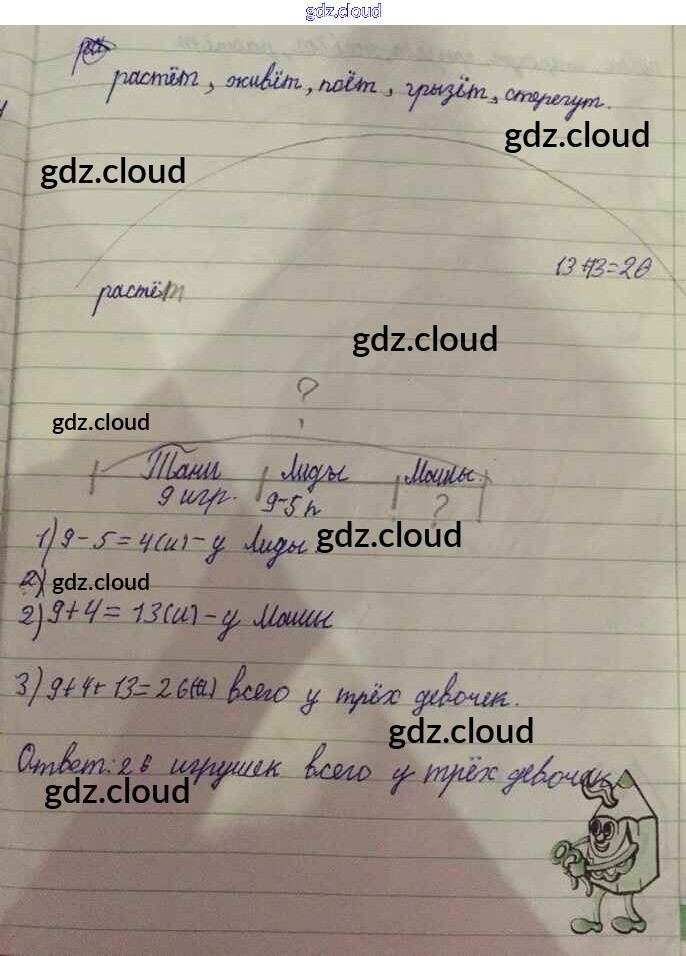 gdz.cloud
растёт, живёт, поёт, грызёт, стерегут.
gdz.cloud
gdz.cloud
13+13=26
растёт
gdz.cloud
?
gdz.cloud
Тани Лиды Маши
9 игр. 9-5 ?
1) 9-5=4(и)-у Лиды
gdz.cloud
2)
gdz.cloud
2) 9+4=13(и)-у Маши
3) 9+4+13=26(и) всего у трёх девочек.
gdz.cloud
Ответ: 26 игрушек всего у трёх девочек
gdz.cloud